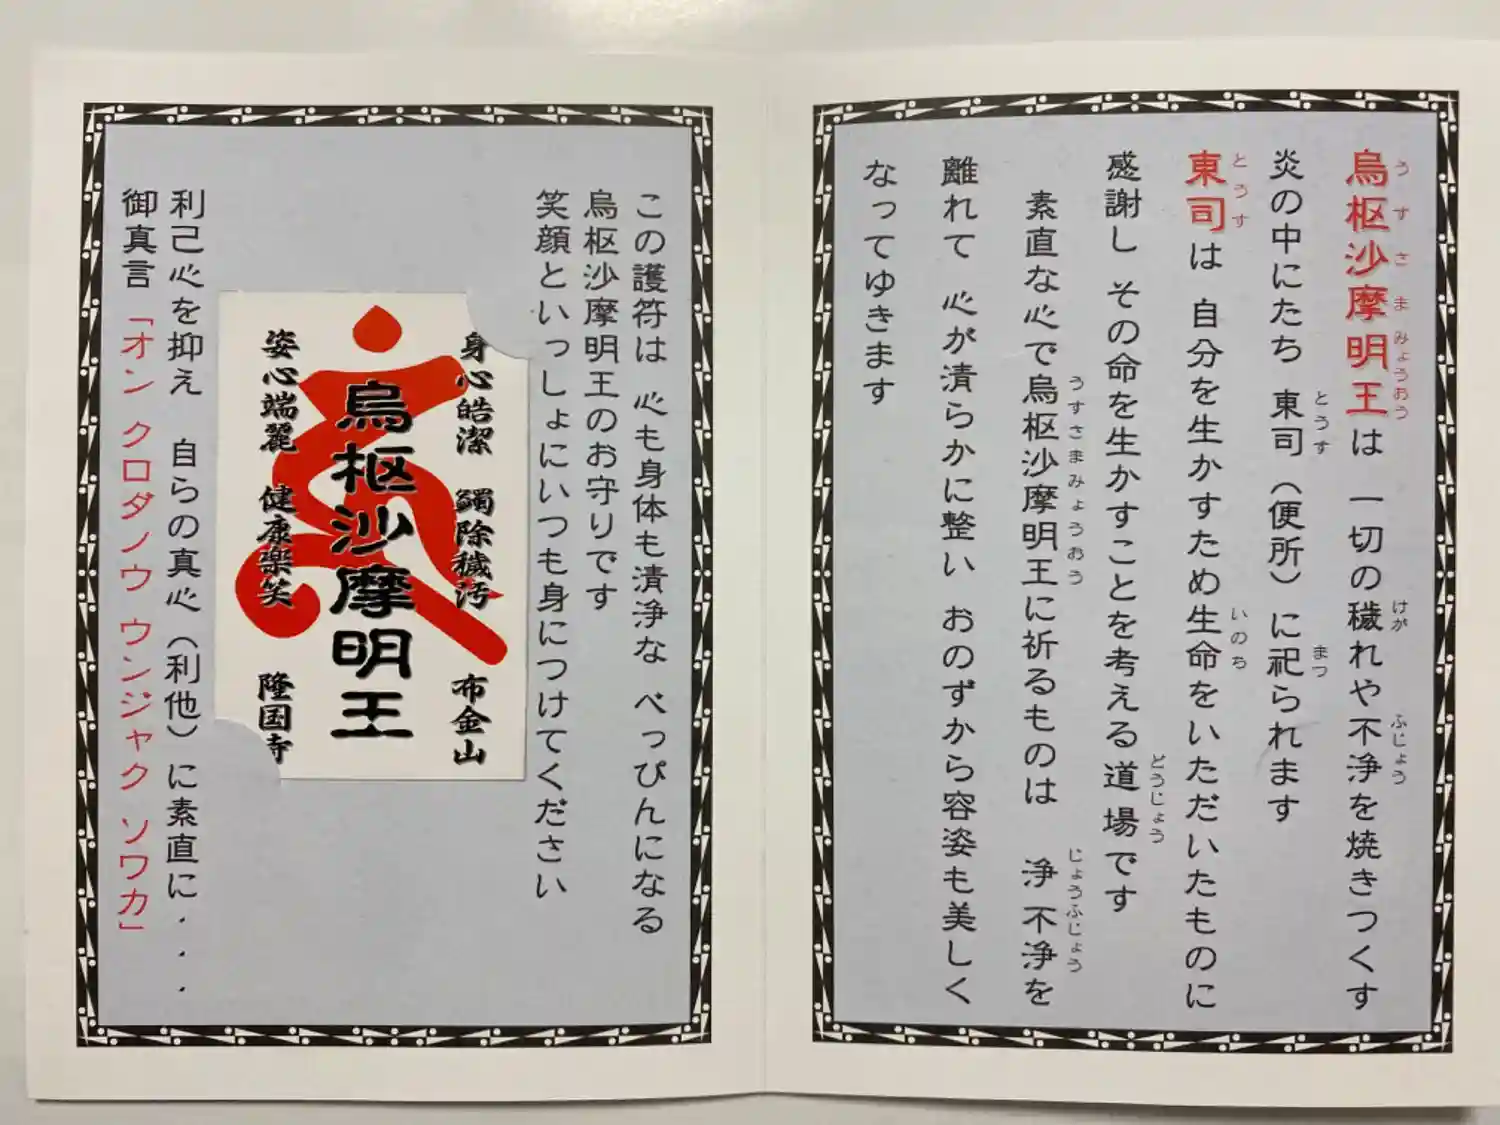 烏枢沙摩明王は 一切の穢れや不浄を焼きつくす
うすさまみょうおう
けが
ふじょう
炎の中にたち 東司（便所）に祀られます
とうす
まつ
東司は 自分を生かすため生命をいただいたものに
とうす
いのち
感謝し その命を生かすことを考える道場です
どうじょう
素直な心で烏枢沙摩明王に祈るものは 浄不浄を
うすさまみょうおう
じょうふじょう
離れて 心が清らかに整い おのずから容姿も美しく
なってゆきます
この護符は 心も身体も清浄な べっぴんになる
烏枢沙摩明王のお守りです
笑顔といっしょにいつも身につけてください
身心皓潔 蠲除穢汚 布金山
烏枢沙摩明王
姿心端麗 健康楽笑 隆国寺
利己心を抑え 自らの真心（利他）に素直に．．．
御真言「オン クロダノウ ウンジャク ソワカ」